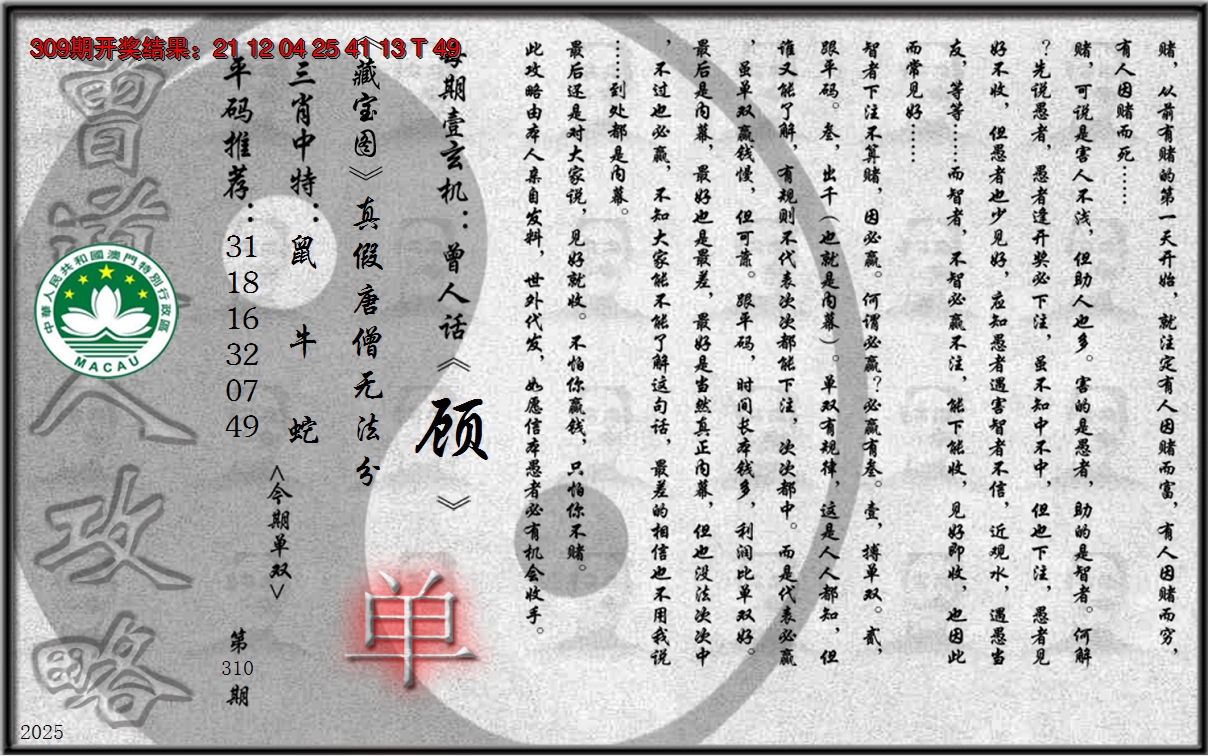 309期开奖结果：21 12 04 25 41 13 T 49
赌，从前有赌的第一天开始，就注定有人因赌而富，有人因赌而穷，
有人因赌而死……
赌，可说是害人不浅，但助人也多。害的是愚者，助的是智者。何解
？先说愚者，愚者逢开奖必下注，虽不知中不中，但也下注，愚者见
好不收，但愚者也少见好，应知愚者遇害智者不信，近观水，遇愚当
友，等等……而智者，不智必赢不注，能下能收，见好即收，也因此
而常见好……
智者下注不算赌，因必赢。何谓必赢？必赢有叁。壹，搏单双。贰，
跟平码。叁，出千（也就是内幕）。单双有规律，这是人人都知，但
谁又能了解，有规则不代表次次都能下注，次次都中。而是代表必赢
，虽单双赢钱慢，但可靠。跟平码，时间长本钱多，利润比单双好。
最后是内幕，最好也是最差，最好是当然真正内幕，但也没法次次中
，不过也必赢，不知大家能不能了解这句话，最差的相信也不用我说
……到处都是内幕。
最后还是对大家说，见好就收。不怕你赢钱，只怕你不赌。
此攻略由本人亲自发料，世外代发，如愿信本愚者必有机会收手。
每期壹玄机：曾人话《顾》
《藏宝图》真假唐僧无法分
三肖中特：鼠 牛 蛇
<今期单双>
单
平码推荐：31 18 16 32 07 49
第310期
曾道人攻略
中華人民共和國澳門特別行政區
MACAU
2025